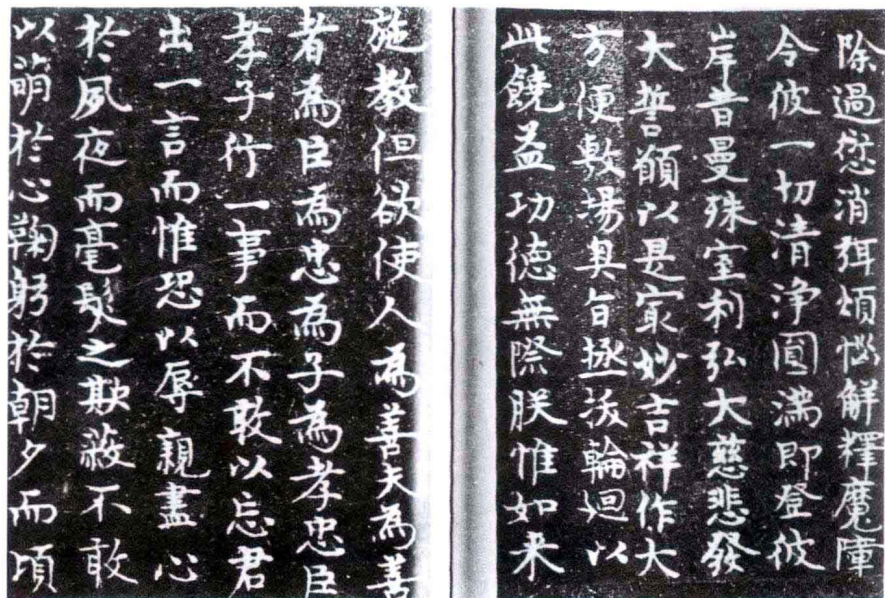 除過愆消弭煩惱解釋魔障
令彼一切清淨圓滿即登彼
岸昔曼殊室利弘大慈悲發
大誓願以是㝡妙吉祥作大
方便敷揚奥旨拯拔輪迴以
此饒益功德無際朕惟如来
施教但欲使人為善夫為善
者為臣為忠為子為孝忠臣
孝子行一事而不敢以忘君
出一言而惟恐以辱親盡心
於夙夜而毫髮之欺蔽不敢
以萌於心鞠躬於朝夕而頃